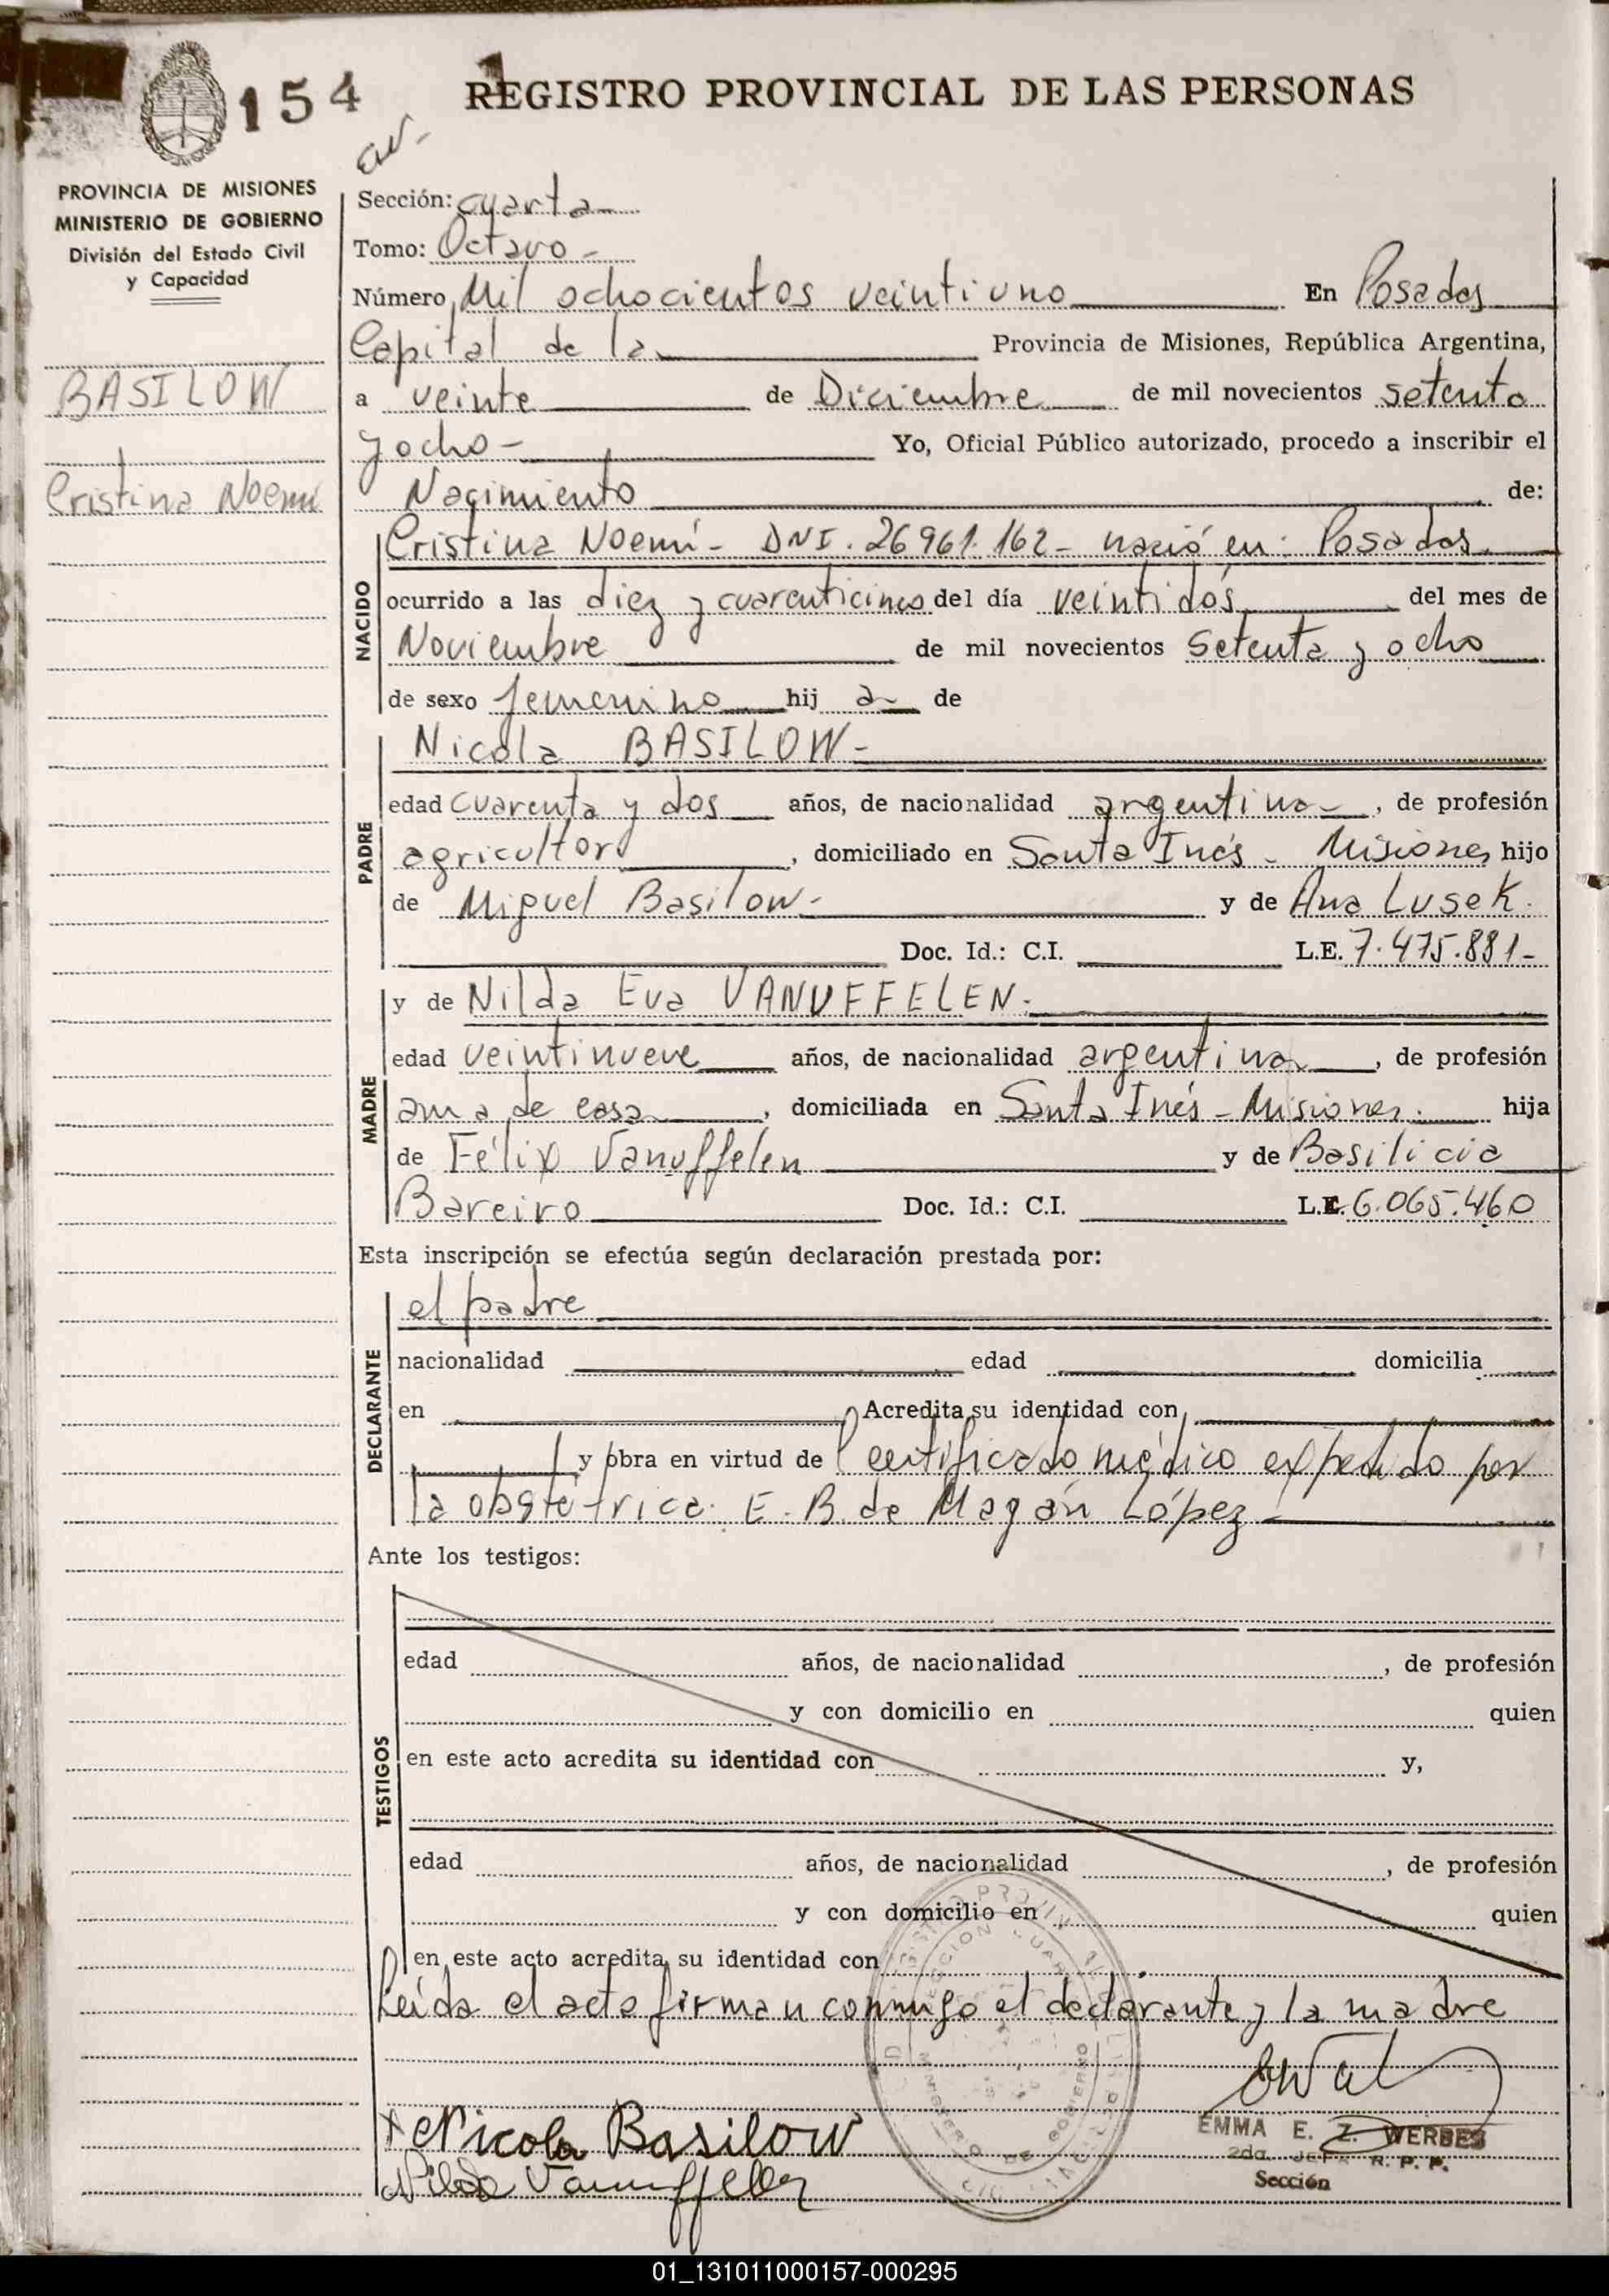 154
REGISTRO PROVINCIAL DE LAS PERSONAS
PROVINCIA DE MISIONES
MINISTERIO DE GOBIERNO
División del Estado Civil
y Capacidad
BASILOW
Cristina Noemí
Sección: cuarta
Tomo: Octavo -
Número Mil ochocientos veintiuno En Posadas
Capital de la Provincia de Misiones, República Argentina,
a veinte de Diciembre de mil novecientos setenta
y ocho - Yo, Oficial Público autorizado, procedo a inscribir el
Nacimiento de:
NACIDO
Cristina Noemí - DNI. 26961.162 - nació en: Posadas
ocurrido a las diez y cuarenticinco del día veintidós del mes de
Noviembre de mil novecientos setenta y ocho
de sexo femenino hij a de
PADRE
Nicola BASILOW -
edad cuarenta y dos años, de nacionalidad argentino, de profesión
agricultor, domiciliado en Santa Inés - Misiones hijo
de Miguel Basilow - y de Ana Lusek.
Doc. Id.: C.I. L.E. 7.475.881 -
MADRE
y de Nilda Eva VANUFFELEN.
edad veintinueve años, de nacionalidad argentina, de profesión
ama de casa, domiciliada en Santa Inés - Misiones. hija
de Félix Vanuffelen y de Basilicia
Bareiro Doc. Id.: C.I. 6.065.460
Esta inscripción se efectúa según declaración prestada por:
DECLARANTE
el padre
nacionalidad edad domicilia
en Acredita su identidad con
y obra en virtud de Certificado médico expedido por
la obstétrica: E. B. de Magán López -
Ante los testigos:
TESTIGOS
edad años, de nacionalidad, de profesión
y con domicilio en quien
en este acto acredita su identidad con y,
edad años, de nacionalidad, de profesión
y con domicilio en quien
en este acto acredita su identidad con
Leída el acta firman conmigo el declarante y la madre
Nicola Basilow
Nilda Vanuffelen
EMMA E. Z. WERBES
2da. JEFE R. P. P.
Sección
01_131011000157-000295